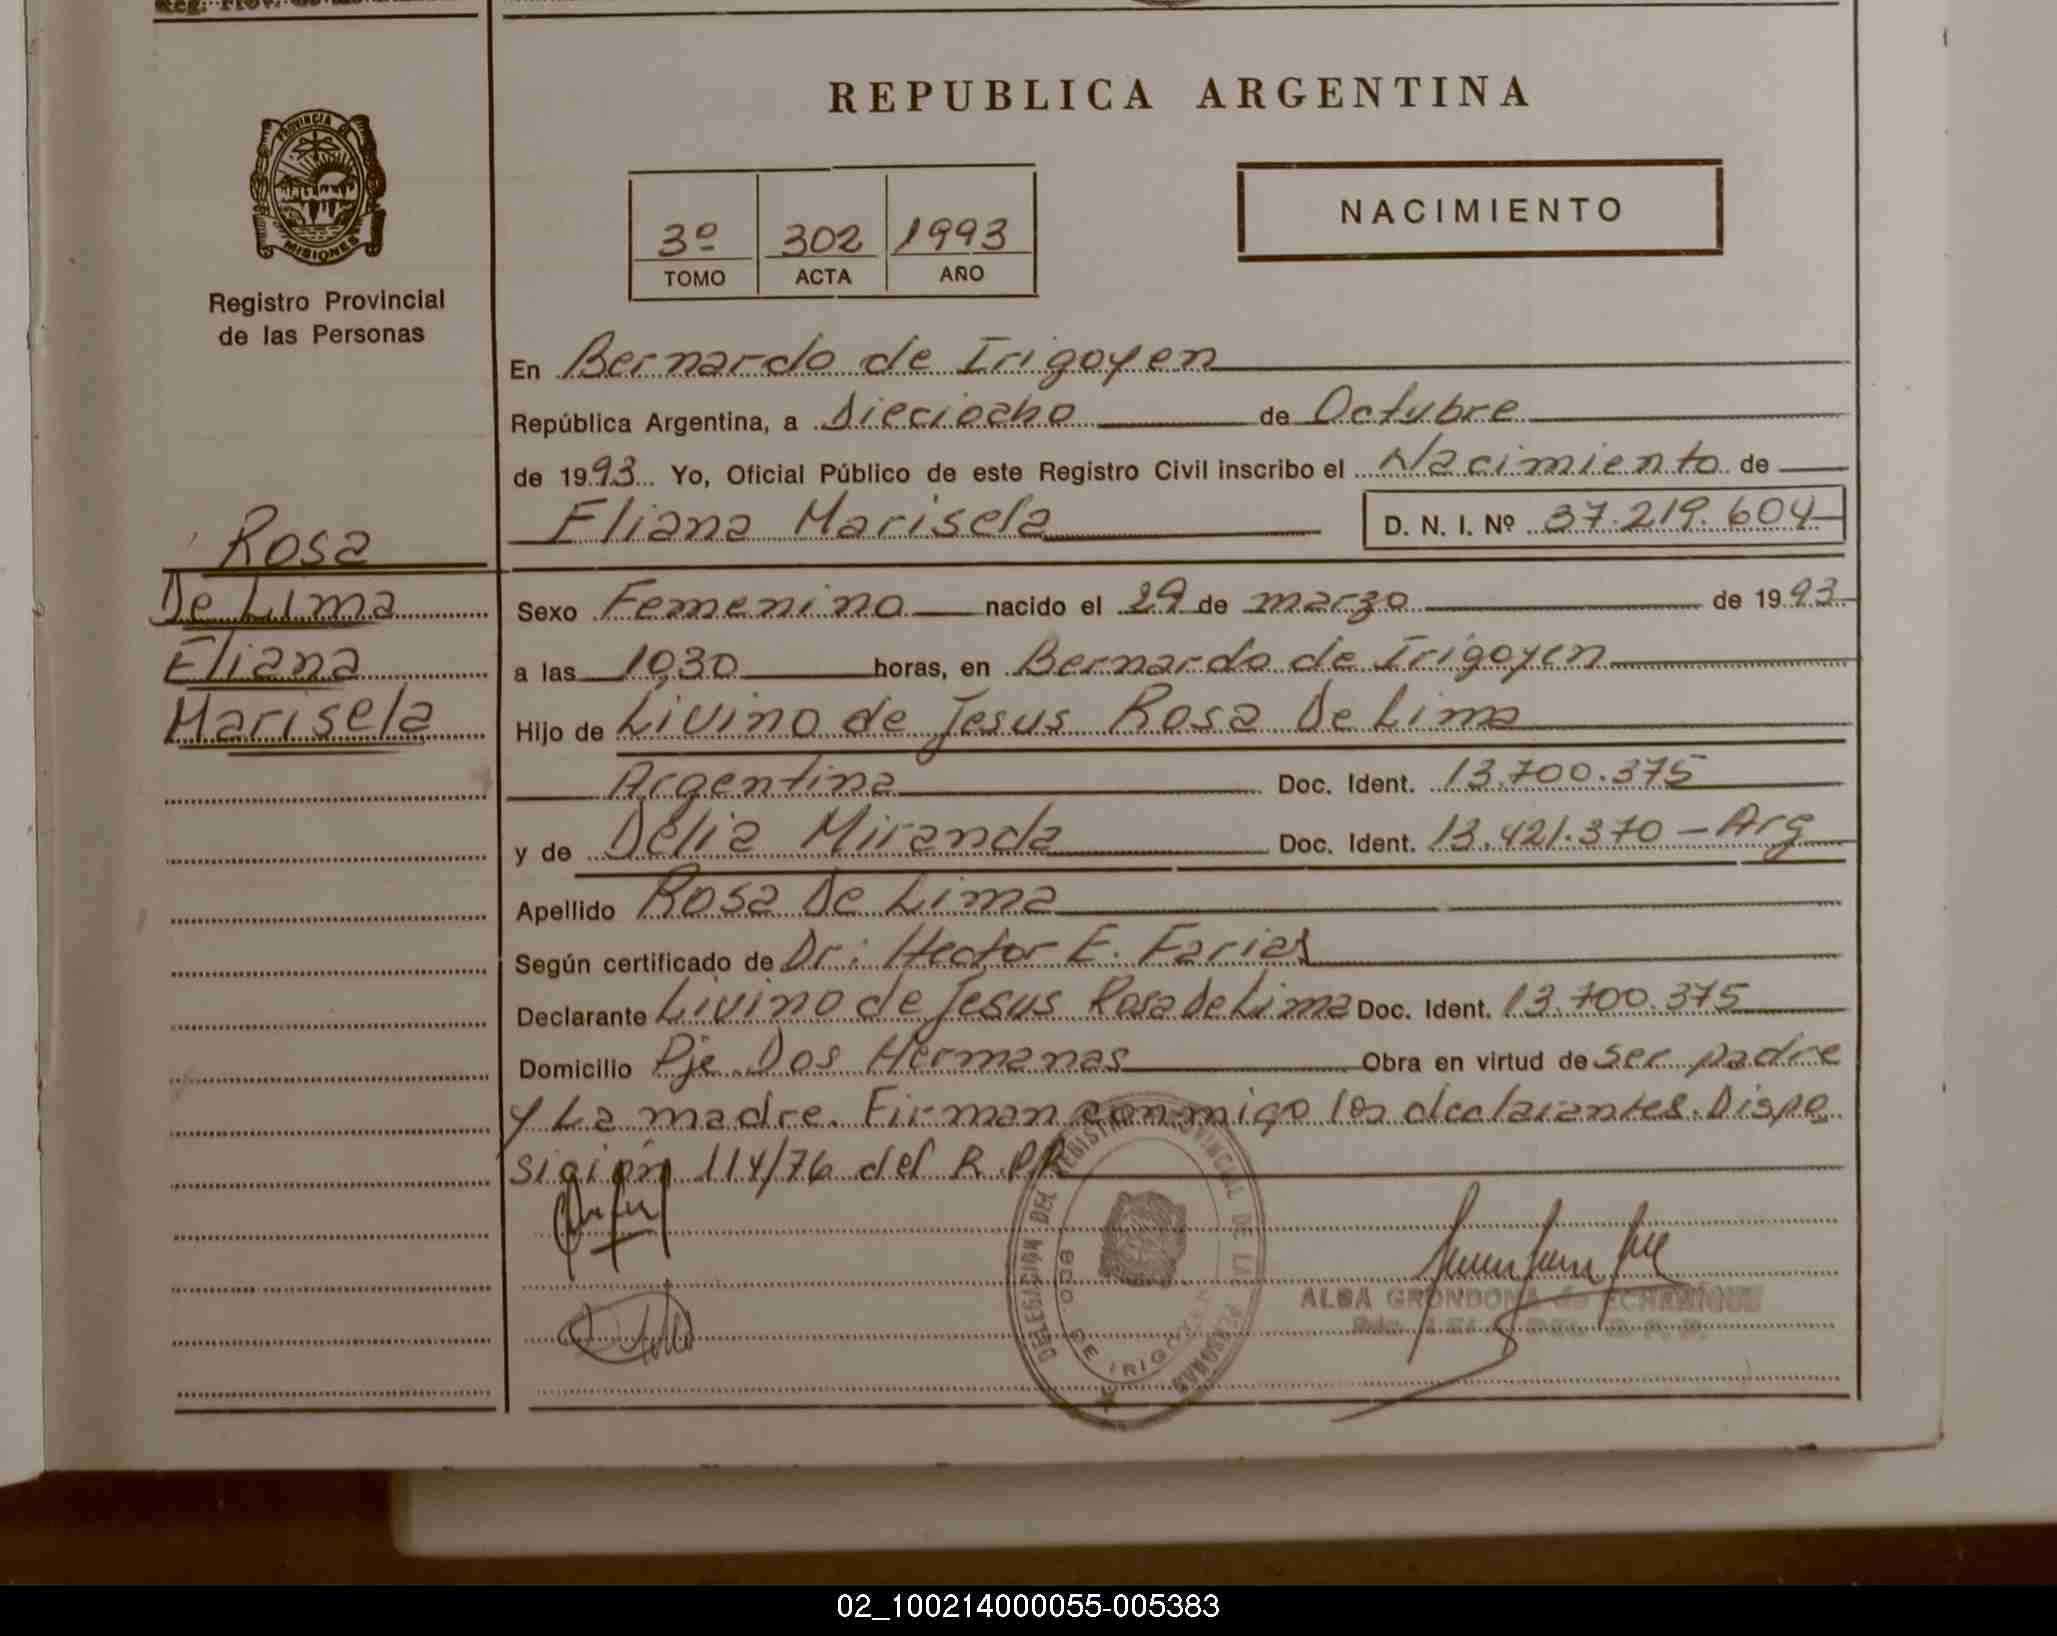 REPUBLICA ARGENTINA
PROVINCIA DE
MISIONES
Registro Provincial
de las Personas
3º 302 1993
TOMO ACTA AÑO
NACIMIENTO
En Bernardo de Irigoyen
República Argentina, a Dieciocho de Octubre
de 1993 Yo, Oficial Público de este Registro Civil inscribo el Nacimiento de
Eliana Marisela D. N. I. Nº 37.219.604
Rosa
De Lima
Eliana
Marisela
Sexo Femenino nacido el 29 de marzo de 1993
a las 1030 horas, en Bernardo de Irigoyen
Hijo de Livino de Jesus Rosa De Lima
Argentina Doc. Ident. 13.700.375
y de Delia Miranda Doc. Ident. 13.421.370 - Arg
Apellido Rosa De Lima
Según certificado de Dr: Hector E. Farias
Declarante Livino de Jesus Rosa De Lima Doc. Ident. 13.700.375
Domicilio Pje Dos Hermanas Obra en virtud de ser padre
y La madre. Firman conmigo los declarantes. Dispo
sición 114/76 del R.P.P.
DELEGACION DEL REGISTRO PROVINCIAL DE LAS PERSONAS
BDO. DE IRIGOYEN
ALBA GRONDONA de ECHENIQUE
02_100214000055-005383